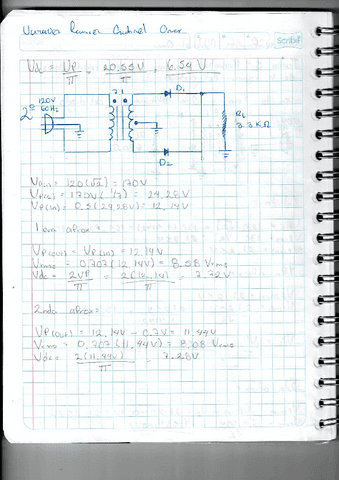 Gabriel Omar
scribe
Vdc = VP/π = 20.55V/π = 6.54 V
2º
120V
60Hz
7:1
D1
RL
3.3 KΩ
D2
= 120(√2) = 170V
= 170V (1/7) = 24.28V
VP(in) = 0.5(24.28V) = 12.14V
1era aprox =
VP(out) = VP(in) = 12.14V
Vrms = 0.707(12.14V) = 8.58 Vrms
Vdc = 2VP/π = 2(12.14)/π = 7.72V
2nda aprox =
VP(out) = 12.14V - 0.7V = 11.44V
Vrms = 0.707(11.44V) = 8.08 Vrms
Vdc = 2(11.44V)/π 7.28V